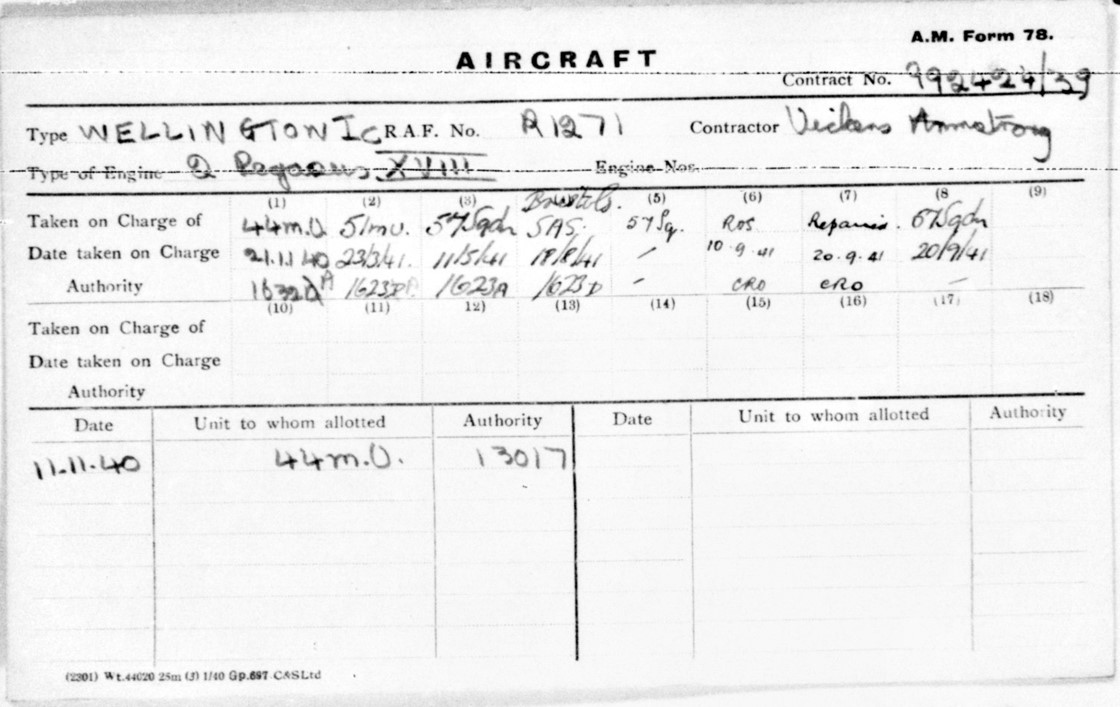 A.M. Form 78.
AIRCRAFT
Contract No. 992424/39
Type WELLINGTON Ic R.A.F. No. R1271 Contractor Vickers Armstrong
Type of Engine 2 Pegasus XVIII Engine Nos.
(1) (2) (3) (5) (6) (7) (8 (9)
Taken on Charge of 44 m.U. 51 mu. 57 Sqdn SAS. 57 Sq. ROS Repairs. 57 Sqdn
Date taken on Charge 21.11.40 23/3/41. 11/5/41 18/8/41 - 10.9.41 20.9.41 20/9/41
Authority 1623A 1623D - CRO CRO -
(10) (11) 12) (13) (14) (15) (16) (17) (18)
Taken on Charge of
Date taken on Charge
Authority
Date Unit to whom allotted Authority Date Unit to whom allotted Authority
11.11.40 44 m.U. 13017
(2301) Wt.44020 25m (3) 1/40 Gp.697 C&SLtd